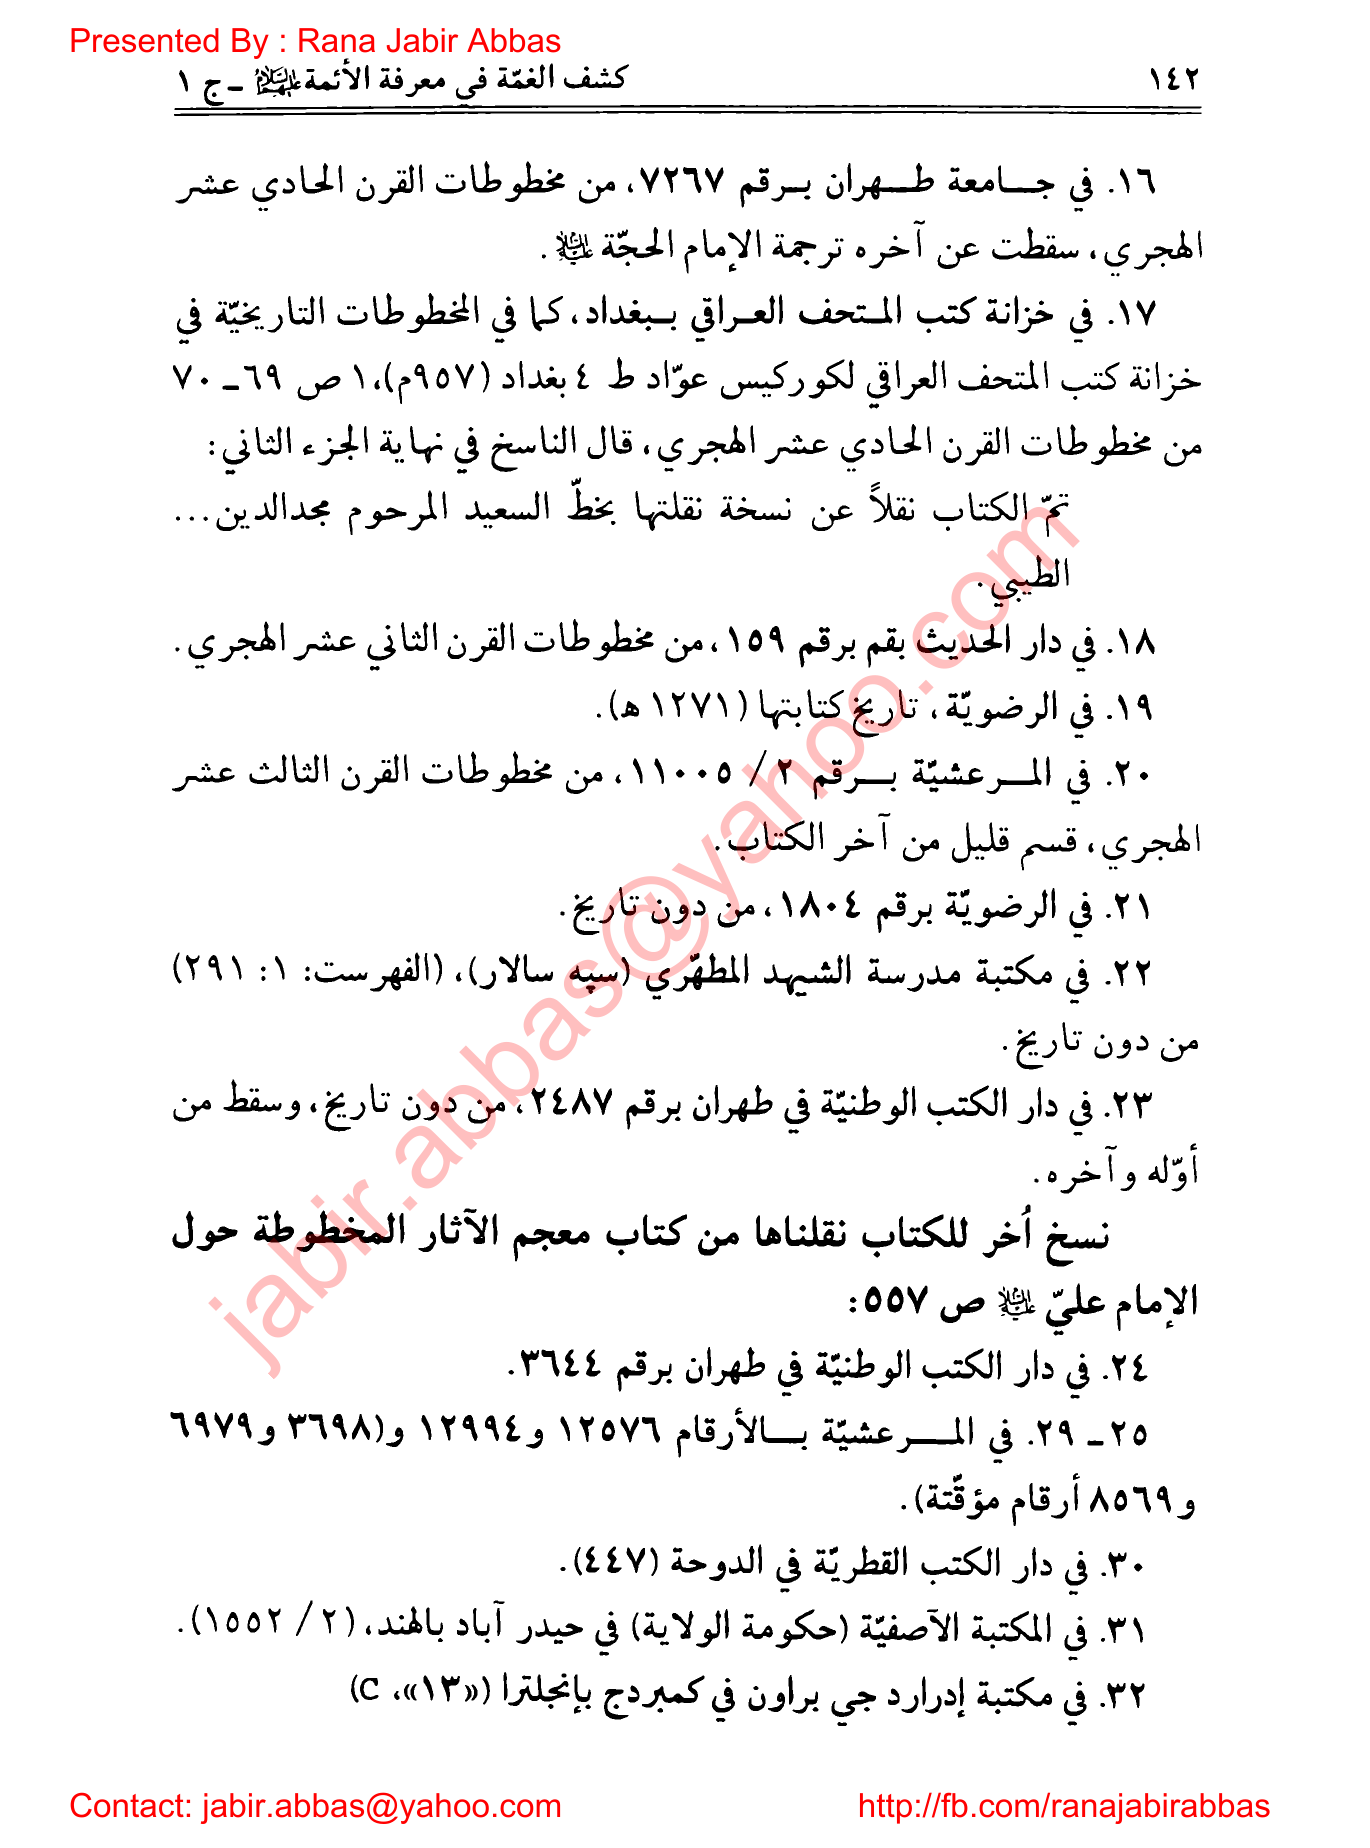 Presented By : Rana Jabir Abbas
١٤٢ كشف الغمّة في معرفة الأئمة عليهم السلام ـ ج ١
١٦. في جـامعة طـهران بـرقم ٧٢٦٧، من مخطوطات القرن الحادي عشر
الهجري، سقطت عن آخره ترجمة الإمام الحجّة عليه السلام.
١٧. في خزانة كتب المتحف العراقي ببغداد، كما في المخطوطات التاريخيّة في
خزانة كتب المتحف العراقي لكوركيس عوّاد ط ٤ بغداد (٩٥٧م)، ١ ص ٦٩ـ ٧٠
من مخطوطات القرن الحادي عشر الهجري، قال الناسخ في نهاية الجزء الثاني:
تمّ الكتاب نقلاً عن نسخة نقلتها بخطّ السعيد المرحوم مجدالدين...
الطيبي.
١٨. في دار الحديث بقم برقم ١٥٩، من مخطوطات القرن الثاني عشر الهجري.
١٩. في الرضويّة، تاريخ كتابتها (١٢٧١ هـ).
٢٠. في المـرعشيّة بـرقم ٢ / ١١٠٠٥، من مخطوطات القرن الثالث عشر
الهجري، قسم قليل من آخر الكتاب.
٢١. في الرضويّة برقم ١٨٠٤، من دون تاريخ.
٢٢. في مكتبة مدرسة الشهيد المطهّري (سپه سالار)، (الفهرست: ١: ٢٩١)
من دون تاريخ.
٢٣. في دار الكتب الوطنيّة في طهران برقم ٢٤٨٧، من دون تاريخ، وسقط من
أوّله وآخره.
نسخ أُخر للكتاب نقلناها من كتاب معجم الآثار المخطوطة حول
الإمام عليّ عليه السلام ص ٥٥٧:
٢٤. في دار الكتب الوطنيّة في طهران برقم ٣٦٤٤.
٢٥ـ ٢٩. في المـرعشيّة بـالأرقام ١٢٥٧٦ و١٢٩٩٤ و(٣٦٩٨ و٦٩٧٩
و٨٥٦٩ أرقام مؤقّتة).
٣٠. في دار الكتب القطريّة في الدوحة (٤٤٧).
٣١. في المكتبة الآصفيّة (حكومة الولاية) في حيدر آباد بالهند، (٢ / ١٥٥٢).
٣٢. في مكتبة إدرارد جي براون في كمبردج بإنجلترا («١٣»، C)
jabir.abbas@yahoo.com
Contact: jabir.abbas@yahoo.com http://fb.com/ranajabirabbas